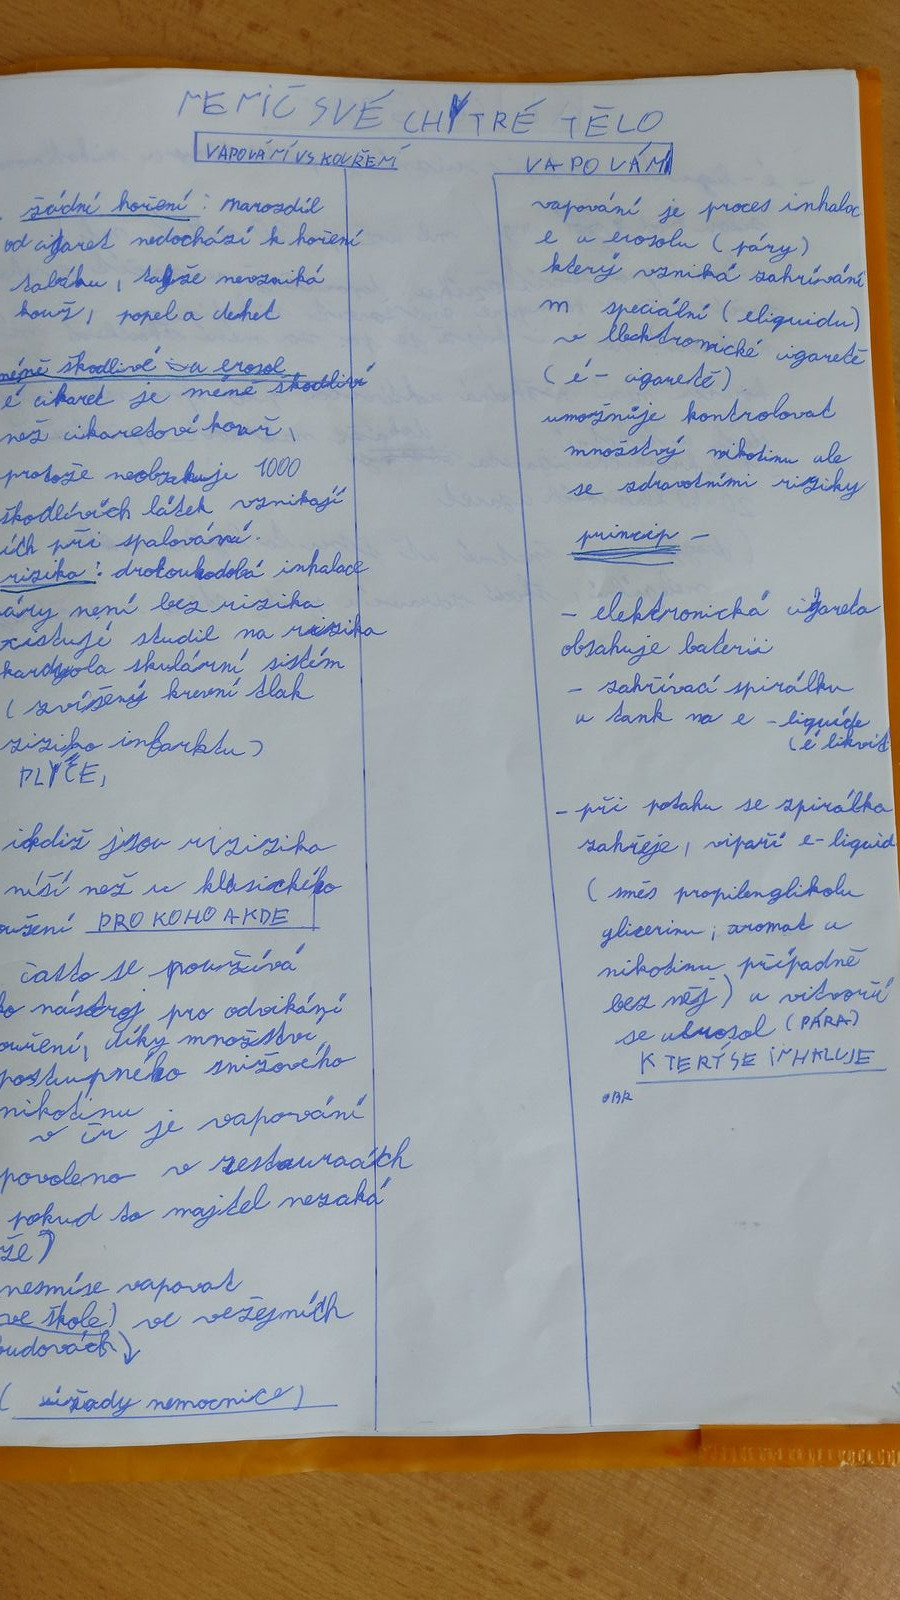 NENIČ SVÉ CHYTRÉ TĚLO
VAPOVÁNÍ VS KOUŘENÍ
žádní hoření: narozdíl
od cigaret nedochází k hoření
tabáku, takže nevzniká
kouř, popel a dehet
méně škodlivé
erosol
é cikaret je méně škodliví
než cikaretoví kouř,
protože neobsahuje 1000
škodlivích látek vznikají
ích při spalování.
rizika: inhalace
áry není bez rizika
xistují studií na rizika
skulární sistém
(zvíšený krevní tlak
riziko infarktu)
PLÝCE,
ikdiž jsou rizizika
niší než u klasického
ouření PRO KOHO A KDE
často se používá
ko nástroj pro odvikání
ouření, díky množství
postupného snižového
nikotinu
v čr je vapování
povoleno v restauracích
pokud to majitel nezaká
že)
nesmíse vapovat
ve škole) ve veřejních
budovách
(úřady nemocnice)
VAPOVÁNÍ
vapování je proces inhalac
e a erosolu (páry)
který vzniká zahříváni
m speciální (eliquidu)
v elektronické cigaretě
(é-cigaretě)
umožnuje kontrolovat
množstvý nikotinu ale
se zdravotními riziky
princip -
- elektronická cigareta
obsahuje baterii
- zahřívací spirálku
a tank na e-liquide
(é likvit
- při potahu se spirálka
zahřeje, vipaří e-liquid
(směs propilenglikolu
glizerinu, aromat a
nikotinu případně
bez něj) a vitvoří
se aerosol (PÁRA)
KTERÝ SE INHALUJE
OBR